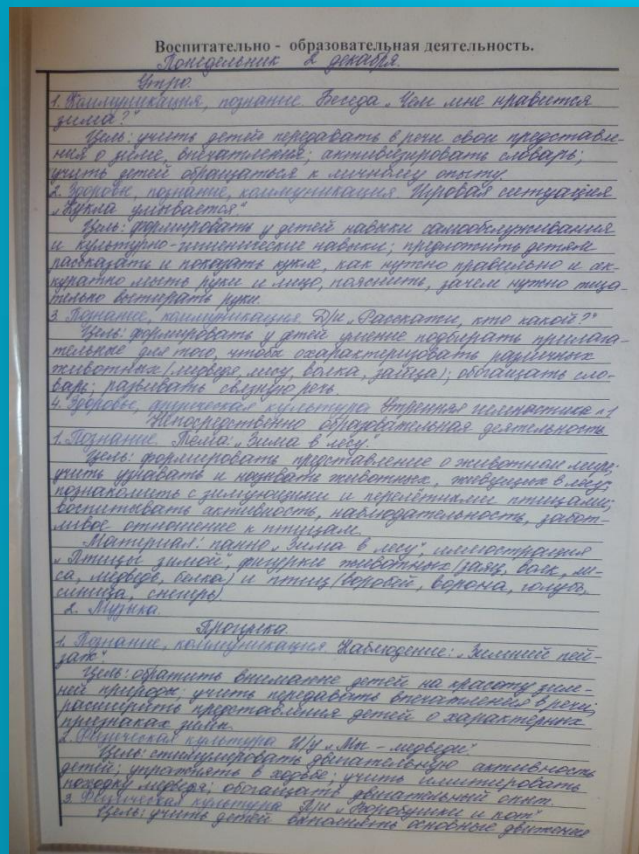 Воспитательно - образовательная деятельность.
Понедельник 2 декабря.
Утро.
1. Коммуникация, познание. Беседа „Чем мне нравится
зима?"
Цель: учить детей передавать в речи свои представле-
ния о зиме, впечатления; активизировать словарь;
учить детей обращаться к личному опыту.
2. Здоровье, познание, коммуникация. Игровая ситуация
„Кукла умывается"
Цель: формировать у детей навыки самообслуживания
и культурно-гигиенические навыки; предложить детям
рассказать и показать кукле, как нужно правильно и ак-
куратно мыть руки и лицо, пояснить, зачем нужно тща-
тельно вытирать руки.
3. Познание, коммуникация. Д/и „Расскажи, кто какой?"
Цель: формировать у детей умение подбирать прилага-
тельные для того, чтобы охарактеризовать различных
животных (медведя, лису, волка, зайца); обогащать сло-
варь; развивать связную речь.
4. Здоровье, физическая культура Утренняя гимнастика №1
Непосредственно образовательная деятельность
1. Познание. Тема: „Зима в лесу."
Цель: формировать представление о животном мире;
учить узнавать и называть животных, живущих в лесу;
познакомить с зимующими и перелётными птицами;
воспитывать активность, наблюдательность, забот-
ливое отношение к птицам.
Материал: панно „Зима в лесу", иллюстрация
„Птицы зимой", фигурки животных (заяц, волк, ли-
са, медведь, белка) и птиц (воробей, ворона, голубь,
синица, снегирь)
2. Музыка.
Прогулка.
1. Познание, коммуникация. Наблюдение: „Зимний пей-
заж"
Цель: обратить внимание детей на красоту зим-
ней природы; учить передавать впечатления в речи;
расширять представления детей о характерных
признаках зимы.
2. Физическая культура И/у „Мы - медведи"
Цель: стимулировать двигательную активность
детей; упражнять в ходьбе; учить имитировать
походку медведя; обогащать двигательный опыт.
3. Физическая культура П/и „Воробушки и кот"
Цель: учить детей выполнять основные движения